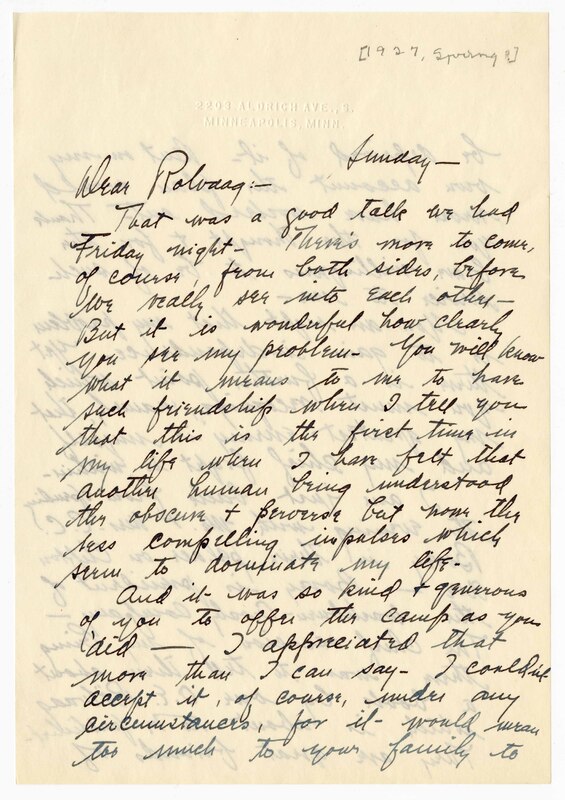 [1927, Spring?]
2203 ALDRICH AVE., S.
MINNEAPOLIS, MINN.
Sunday—
Dear Rolvaag:—
That was a good talk we had
Friday night— There's more to come,
of course, from both sides, before
we really see into each other—
But it is wonderful how clearly
you see my problem— You will know
what it means to me to have
such friendship when I tell you
that this is the first time in
my life when I have felt that
another human being understood
the obscure + perverse but none the
less compelling impulses which
seem to dominate my life—
And it was so kind + generous
of you to offer the camp as you
did — I appreciated that
more than I can say— I couldn't
accept it, of course, under any
circumstances, for it would mean
too much to your family to